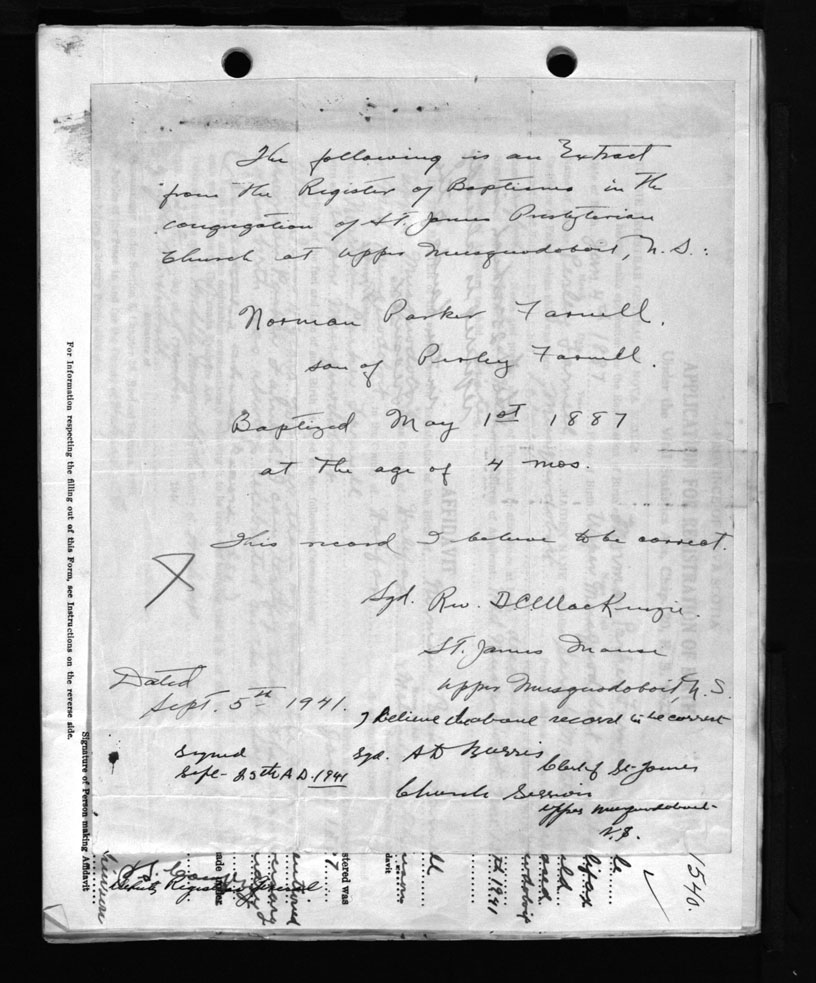 The following is an Extract
from the Register of Baptisms in the
congregation of St. James Presbyterian
Church at Upper Musquodoboit, N.S.:
Norman Parker Farnell.
son of Perley Farnell.
Baptized May 1st 1887
at the age of 4 mos.
This record I believe to be correct.
Sgd. Rev. D C MacKenzie.
St. James Manse
Upper Musquodoboit, N.S.
Dated
Sept. 5th 1941.
I believe above record to be correct
Signed
Sept- 25th A.D. 1941
Sgd. A D Burris
Clerk of St James
Church Session
Upper Musquodoboit-
N.S.
Deputy Registrar General.
1540.
For Information respecting the filling out of this Form, see Instructions on the reverse side.
Signature of Person making Affidavit
APPLICATION FOR REGISTRATION OF
AFFIDAVIT
stered was
davit
made
th 1941